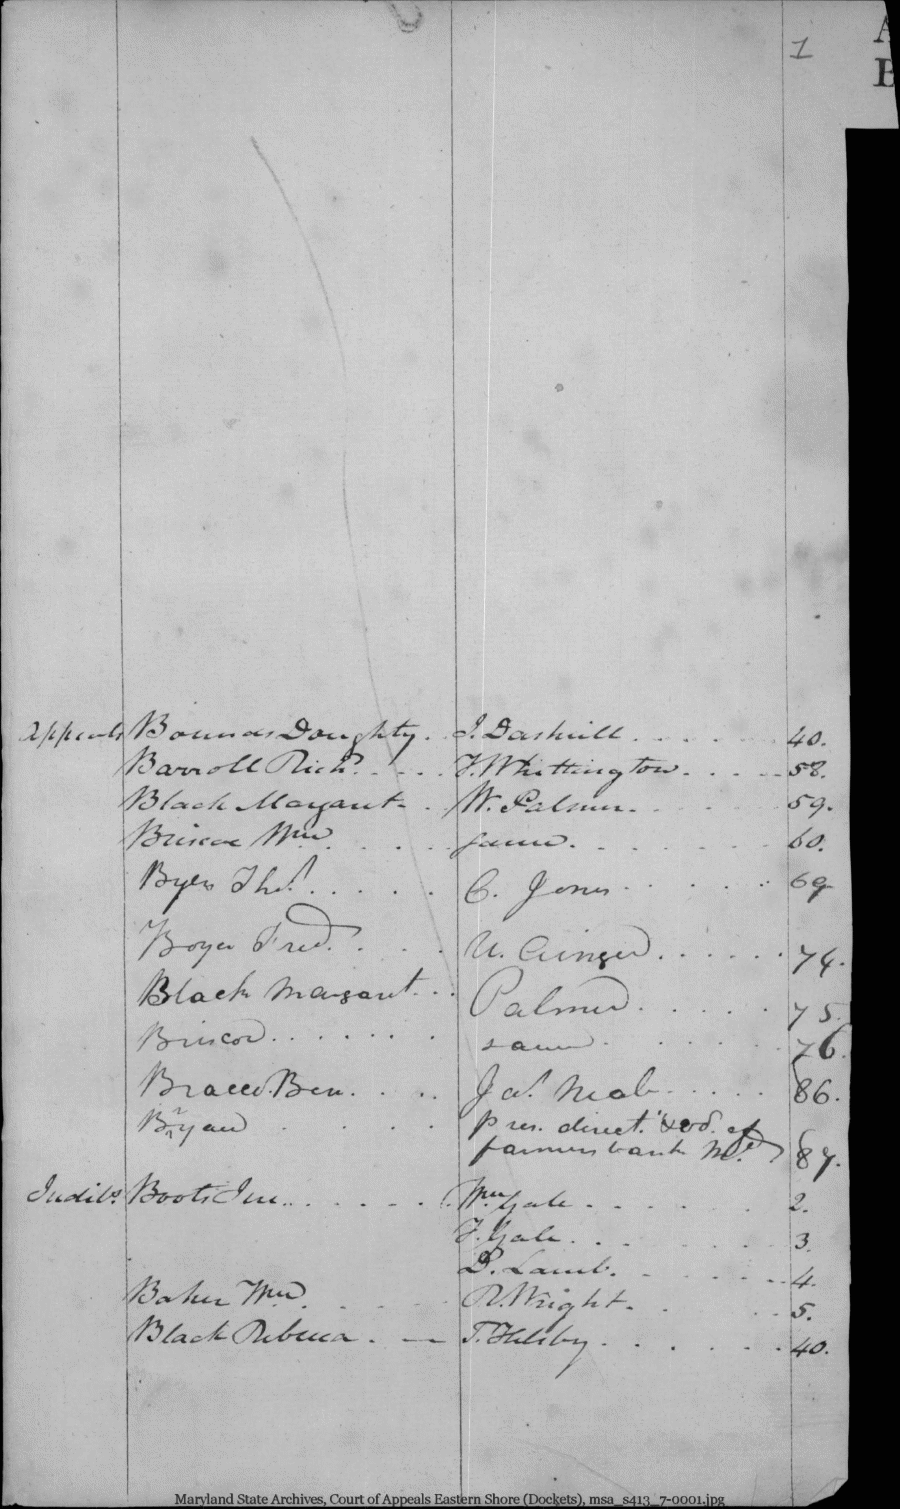 1
A
B
Appeals Bounds Doughty. J. Dashiell. 40.
Barroll Richd. T. Whittington. 58.
Black Margaret. W. Palmer. 59.
Briscoe Wm. same. 60.
Byers Thos. C. Jones. 69
Boyer Fred. U. 74.
Black Margaret. Palmer. 75.
Briscoe. same. 76.
Bracco Ben. Jas. Neal. 86.
Bryan pres. direct. &Co. of
farmers bank Md. 87.
Judics. Boots Jno. Wm. Gale. 2.
T. Gale. 3.
P. Lamb. 4.
Baker Wm. R. Wright. 5.
Black Rebecca. T. Helsby. 40.
Maryland State Archives, Court of Appeals Eastern Shore (Dockets), msa_s413_7-0001.jpg